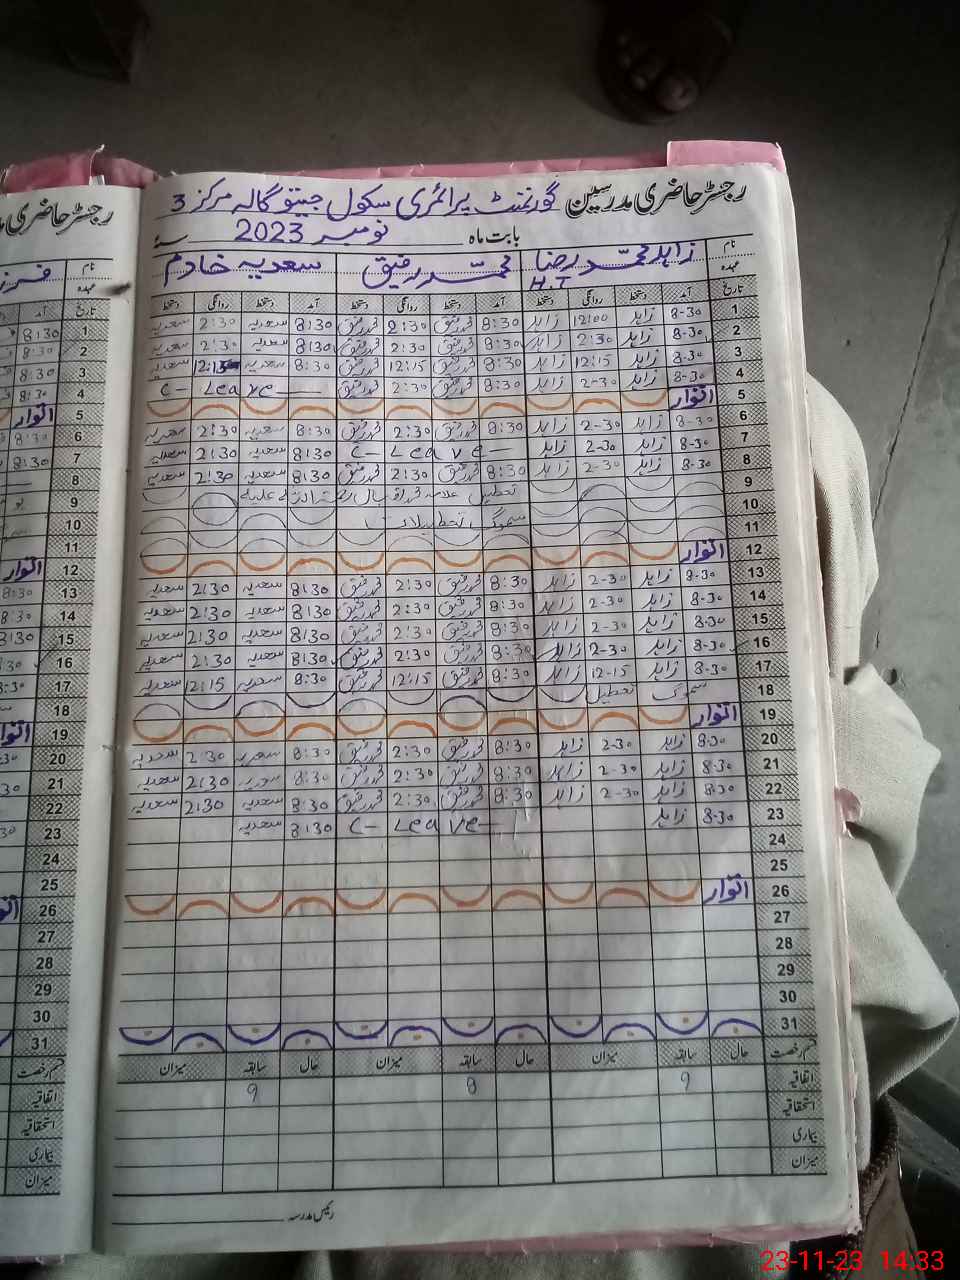 رجسٹر حاضری مدرسین گورنمنٹ پرائمری سکول جیتو گالہ مرکز 3
بابت ماہ نومبر 2023 سنہ
نام زاہد محمد رضا محمد رفیق سعدیہ خادم
عہدہ H.T
تاریخ آمد دستخط روانگی دستخط آمد دستخط روانگی دستخط آمد دستخط روانگی دستخط
1 8-30 زاہد 12:00 زاہد 8:30 محمد رفیق 2:30 محمد رفیق 8:30 سعدیہ 2:30 سعدیہ
2 8-30 زاہد 2-30 زاہد 8:30 محمد رفیق 2:30 محمد رفیق 8:30 سعدیہ 2:30 سعدیہ
3 8-30 زاہد 12:15 زاہد 8:30 محمد رفیق 12:15 محمد رفیق 8:30 سعدیہ 12:15 سعدیہ
4 8-30 زاہد 2-30 زاہد 8:30 محمد رفیق 2:30 محمد رفیق C- Leave
5 اتوار
6 8-30 زاہد 2-30 زاہد 8:30 محمد رفیق 2:30 محمد رفیق 8:30 سعدیہ 2:30 سعدیہ
7 8-30 زاہد 2-30 زاہد C- Leave 8:30 سعدیہ 2:30 سعدیہ
8 8-30 زاہد 2-30 زاہد 8:30 محمد رفیق 2:30 محمد رفیق 8:30 سعدیہ 2:30 سعدیہ
9 تعطیل علامہ محمد اقبال
10 سموگ تعطیلات
11
12 اتوار
13 8-30 زاہد 2-30 زاہد 8:30 محمد رفیق 2:30 محمد رفیق 8:30 سعدیہ 2:30 سعدیہ
14 8-30 زاہد 2-30 زاہد 8:30 محمد رفیق 2:30 محمد رفیق 8:30 سعدیہ 2:30 سعدیہ
15 8-30 زاہد 2-30 زاہد 8:30 محمد رفیق 2:30 محمد رفیق 8:30 سعدیہ 2:30 سعدیہ
16 8-30 زاہد 2-30 زاہد 8:30 محمد رفیق 2:30 محمد رفیق 8:30 سعدیہ 2:30 سعدیہ
17 8-30 زاہد 12-15 زاہد 8:30 محمد رفیق 12:15 محمد رفیق 8:30 سعدیہ 12:15 سعدیہ
18 سموگ تعطیل
19 اتوار
20 8-30 زاہد 2-30 زاہد 8:30 محمد رفیق 2:30 محمد رفیق 8:30 سعدیہ 2:30 سعدیہ
21 8-30 زاہد 2-30 زاہد 8:30 محمد رفیق 2:30 محمد رفیق 8:30 سعدیہ 2:30 سعدیہ
22 8-30 زاہد 2-30 زاہد 8:30 محمد رفیق 2:30 محمد رفیق 8:30 سعدیہ 2:30 سعدیہ
23 8-30 زاہد C- Leave 8:30 سعدیہ
24
25
26 اتوار
27
28
29
30
31
قسم رخصت حال سابقہ میزان حال سابقہ میزان حال سابقہ میزان
اتفاقیہ 9 8 9
استحقاقیہ
بیماری
میزان
رئیس مدرسہ
رجسٹر حاضری
نام
عہدہ
تاریخ آمد
1 8:30
2 8:30
3 8:30
4 8:30
5 اتوار
6 8:30
7 8:30
8
9
10
11
12 اتوار
13 8:30
14 8:30
15 8:30
16
17
18
19
20
21
22
23
24
25
26
27
28
29
30
31
قسم رخصت
اتفاقیہ
استحقاقیہ
بیماری
میزان
23-11-23 14:33